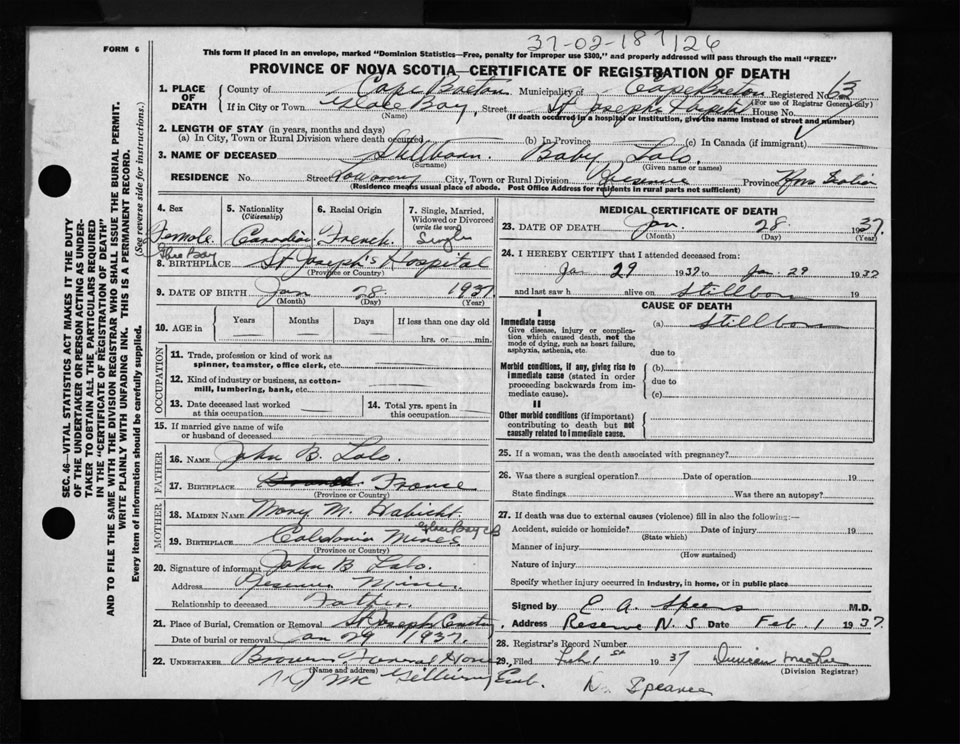 37-02-187126
FORM 6
This form if placed in an envelope, marked "Dominion Statistics—Free, penalty for improper use $300," and properly addressed will pass through the mail "FREE"
PROVINCE OF NOVA SCOTIA—CERTIFICATE OF REGISTRATION OF DEATH
1. PLACE OF DEATH
County of Cape Breton Municipality of Cape Breton Registered No. 63
(For use of Registrar General only)
If in City or Town Glace Bay, Street St Joseph's Hospital House No.
(Name) (If death occurred in a hospital or institution, give the name instead of street and number)
2. LENGTH OF STAY (in years, months and days)
(a) In City, Town or Rural Division where death occurred (b) In Province (c) In Canada (if immigrant)
3. NAME OF DECEASED Stillborn. Baby Lalo.
(Surname) (Given name or names)
RESIDENCE No. Street City, Town or Rural Division Reserve Province Nova Scotia
(Residence means usual place of abode. Post Office Address for residents in rural parts not sufficient)
SEC. 46—VITAL STATISTICS ACT MAKES IT THE DUTY
OF THE UNDERTAKER OR PERSON ACTING AS UNDER-
TAKER TO OBTAIN ALL THE PARTICULARS REQUIRED
IN THE "CERTIFICATE OF REGISTRATION OF DEATH"
AND TO FILE THE SAME WITH THE DIVISION REGISTRAR WHO SHALL ISSUE THE BURIAL PERMIT.
WRITE PLAINLY WITH UNFADING INK. THIS IS A PERMANENT RECORD.
Every item of information should be carefully supplied. (See reverse side for instructions.)
4. Sex
Female
5. Nationality
(Citizenship)
Canadian
6. Racial Origin
French
7. Single, Married, Widowed or Divorced
(write the word)
Single
Glace Bay
8. BIRTHPLACE St Joseph's Hospital
(Province or Country)
9. DATE OF BIRTH Jan 28 1937
(Month) (Day) (Year)
10. AGE in
Years Months Days If less than one day old
hrs. or min.
OCCUPATION
11. Trade, profession or kind of work as spinner, teamster, office clerk, etc.
12. Kind of industry or business, as cotton-mill, lumbering, bank, etc.
13. Date deceased last worked at this occupation
14. Total yrs. spent in this occupation
15. If married give name of wife or husband of deceased
FATHER
16. NAME John B. Lalo.
17. BIRTHPLACE France
(Province or Country)
MOTHER
18. MAIDEN NAME Mary M. Habicht
19. BIRTHPLACE Caledonia Mines Glace Bay CB
(Province or Country)
20. Signature of informant John B Lalo.
Address Reserve Mines.
Relationship to deceased Father.
21. Place of Burial, Cremation or Removal St Joseph Cemetery,
Date of burial or removal Jan 29 1937.
22. UNDERTAKER Brown Funeral Home
(Name and address)
MEDICAL CERTIFICATE OF DEATH
23. DATE OF DEATH Jan. 28. 1937.
(Month) (Day) (Year)
24. I HEREBY CERTIFY that I attended deceased from:
Jan 29 1937 to Jan. 29 1937
and last saw h alive on Stillborn 19
CAUSE OF DEATH
I
Immediate cause
Give disease, injury or complication which caused death, not the mode of dying, such as heart failure, asphyxia, asthenia, etc.
(a) Stillborn
due to
Morbid conditions, if any, giving rise to immediate cause (stated in order proceeding backwards from immediate cause).
(b)
due to
(c)
II
Other morbid conditions (if important) contributing to death but not causally related to immediate cause.
25. If a woman, was the death associated with pregnancy?
26. Was there a surgical operation? Date of operation 19
State findings Was there an autopsy?
27. If death was due to external causes (violence) fill in also the following:—
Accident, suicide or homicide? Date of injury 19
(State which)
Manner of injury
(How sustained)
Nature of injury
Specify whether injury occurred in industry, in home, or in public place
Signed by E A. Speers M.D.
Address Reserve N. S Date Feb. 1 1937.
28. Registrar's Record Number
29. Filed Feb 1st 1937 Duncan
(Division Registrar)